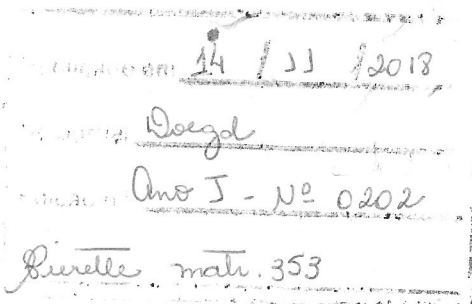 14 / 11 / 2018
Doegd
Ano I - Nº 0202
Pierette matr. 353